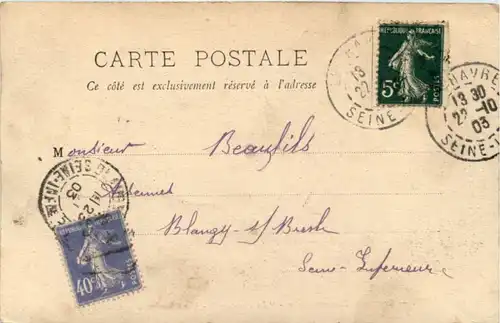 CARTE POSTALE
Ce côté est exclusivement réservé à l'adresse
RÉPUBLIQUE FRANÇAISE
5c
POSTES
13
SEINE
HAVRE
13 30
22 -10
03
SEINE-I
Monsieur Beaufils
Blangy s/ Bresle
Seine Inferieure
40c